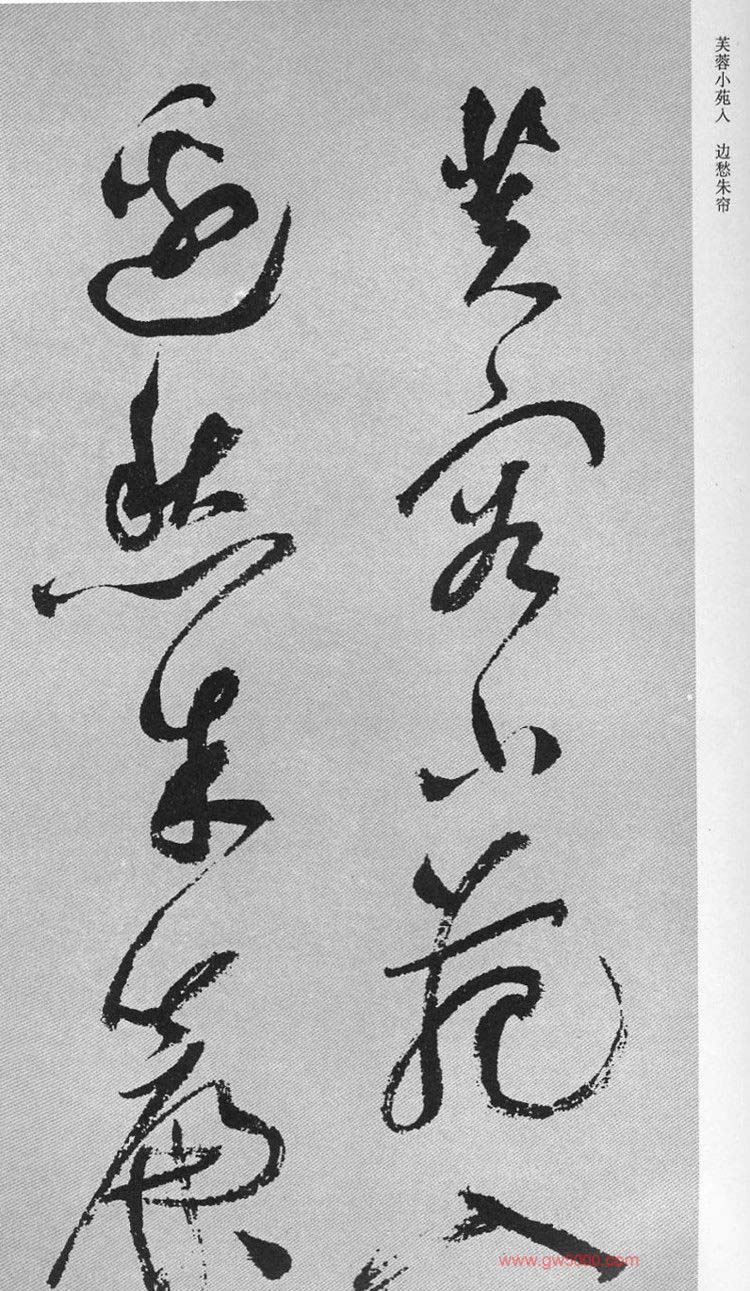 芙蓉小苑入 边愁朱帘
芙蓉小苑入
邊愁朱簾
www.gw5000.com